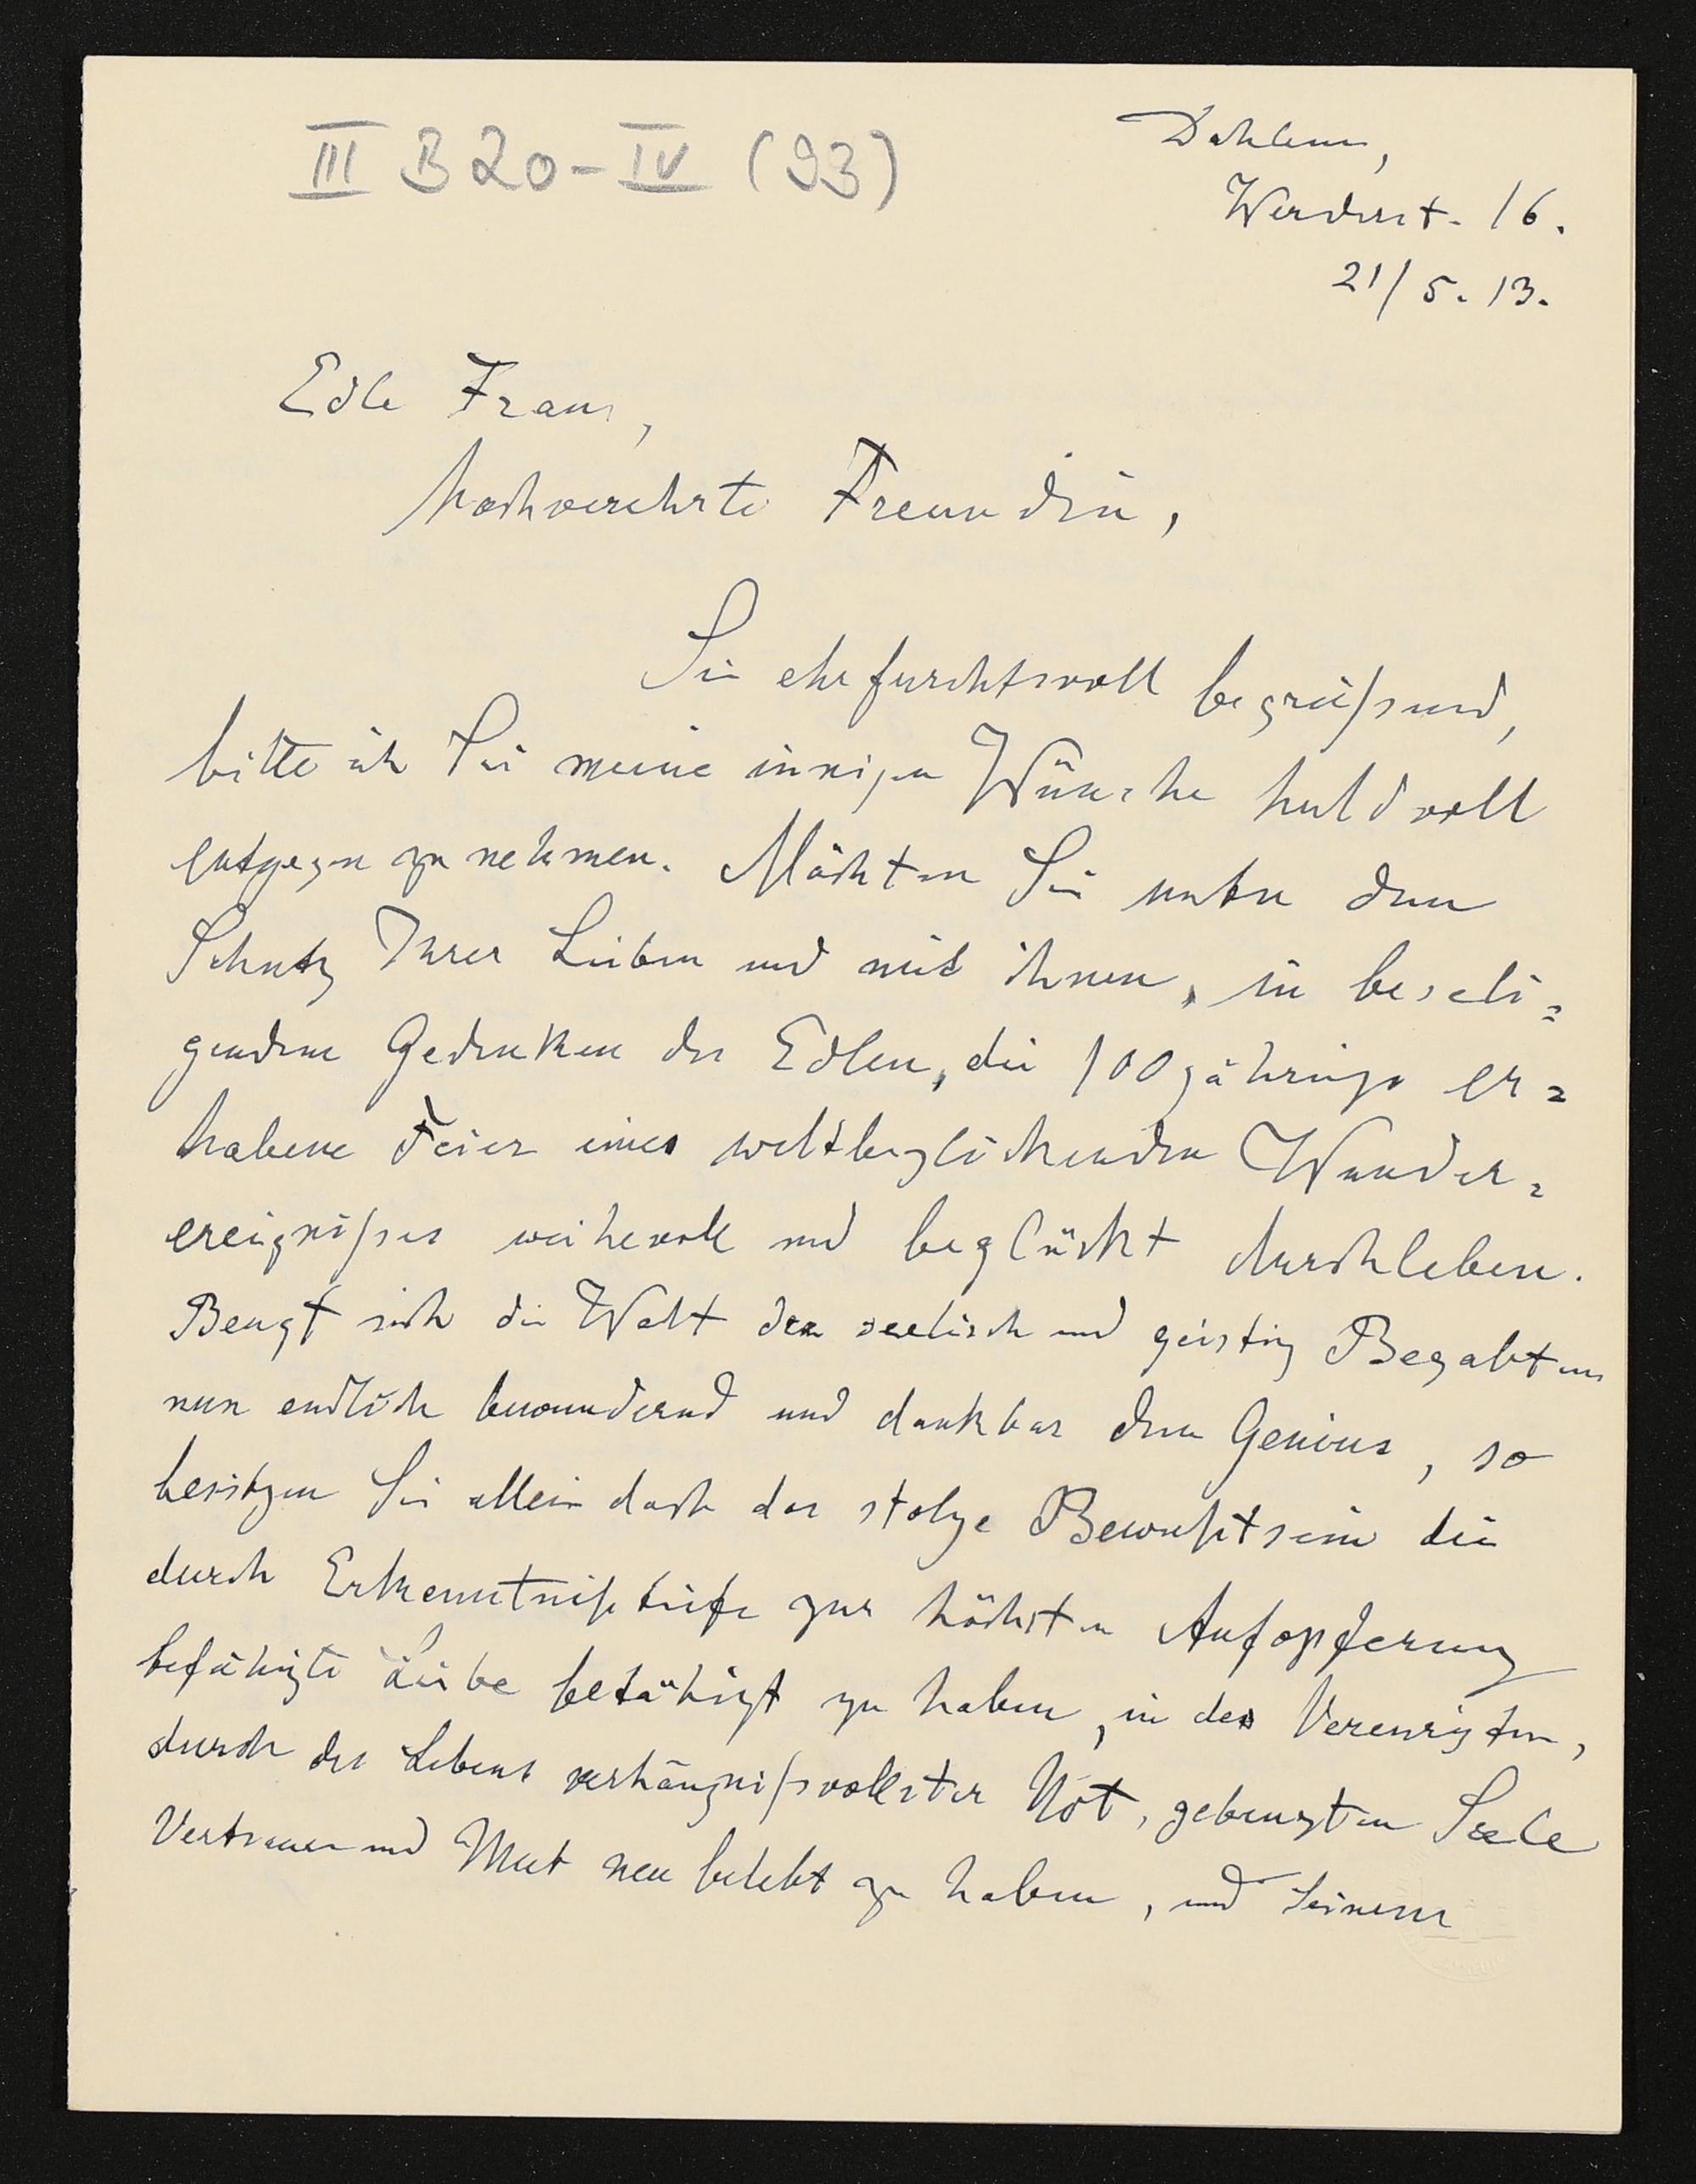 III B 20 - IV (93)
Dahlem,
Werderst. 16.
21/5. 13.
Edle Frau,
hochverehrte Freundin,
Sie ehrfurchtsvoll begrüßend,
bitte ich Sie meine innigen Wünsche huldvoll
entgegen zu nehmen. Möchten Sie unter dem
Schutz Ihrer Lieben und mit ihnen, in beseli=
gendem Gedenken des Edlen, die 100jährige er=
habene Feier eines weltbeglückenden Wunder=
ereignißes weihevoll und beglückt durchleben.
Beugt sich die Welt der seelisch und geistig Begabten
nun endlich bewundernd und dankbar dem Genius, so
besitzen Sie allein doch das stolze Bewußtsein die
durch Erkenntnißtiefe zur höchsten Aufopferung
befähigte Liebe betätigt zu haben, in der
durch des Lebens verhängnißvollster Not, gebeugten Seele
Vertrauen und Mut neu belebt zu haben, und Seinem